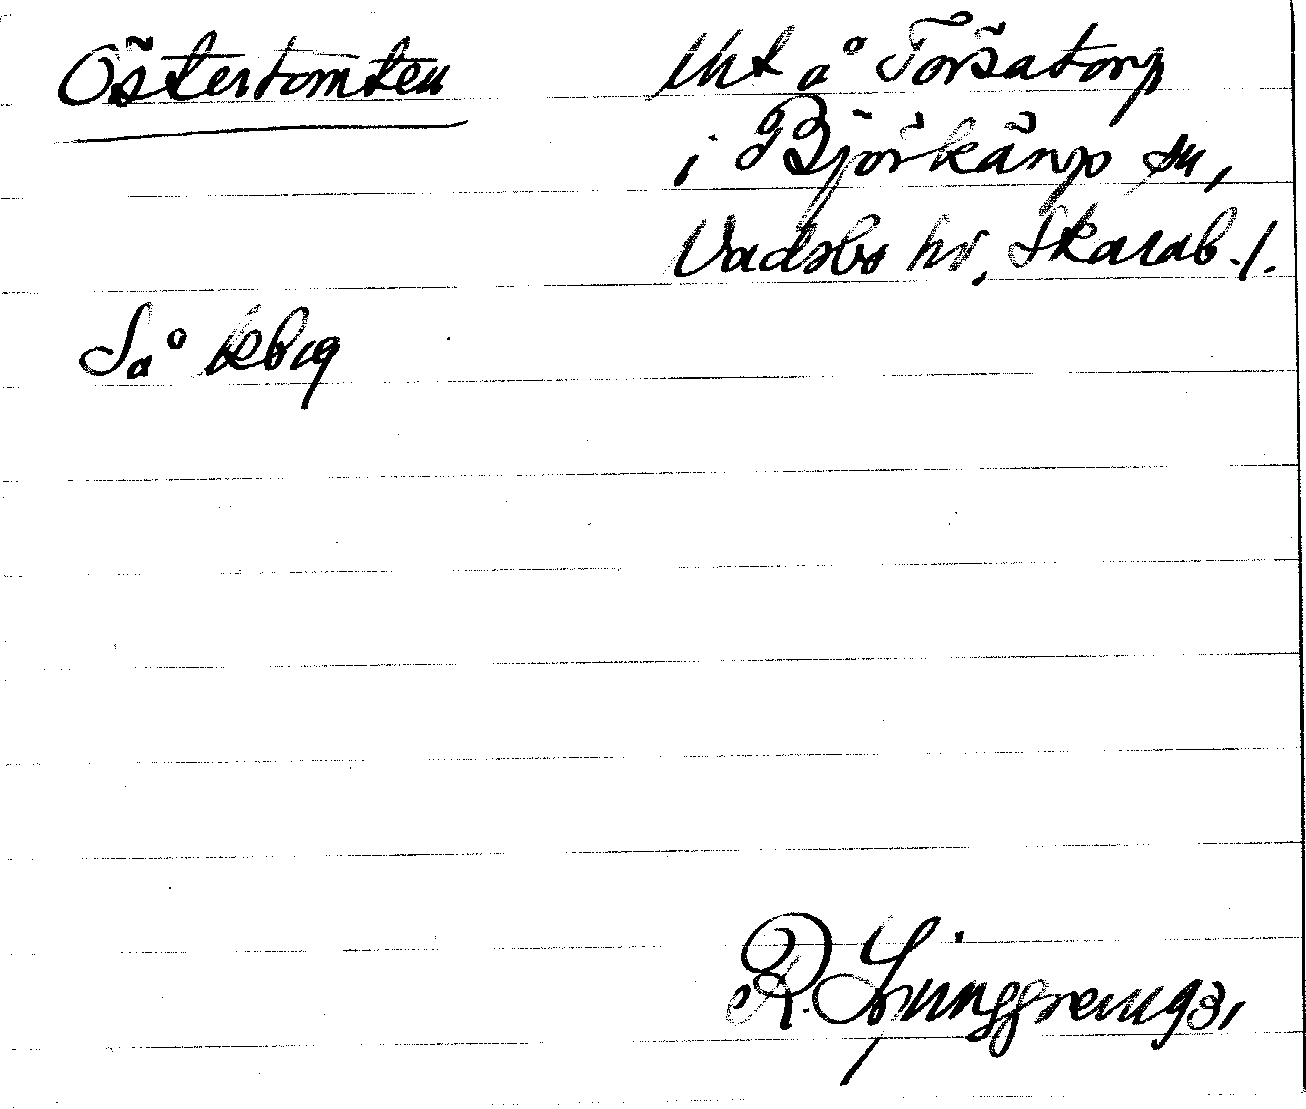 Östertomten
lht å Torsatorp
i Björkäng sn,
Vadsbo hd, Skarab. l.
Så kbg
R. Ljunggren 1931